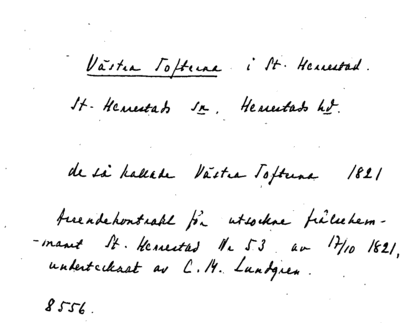 Västra Tofterna i St. Herrestad.
St. Herrestads sn, Herrestads hd.
de så kallade Västra Tofterna 1821
Arrendekontrakt för utsockne frälsehem-
-manet St. Herrestad Nr 53 av 17/10 1821,
undertecknat av C. M. Lundgren.
8556.